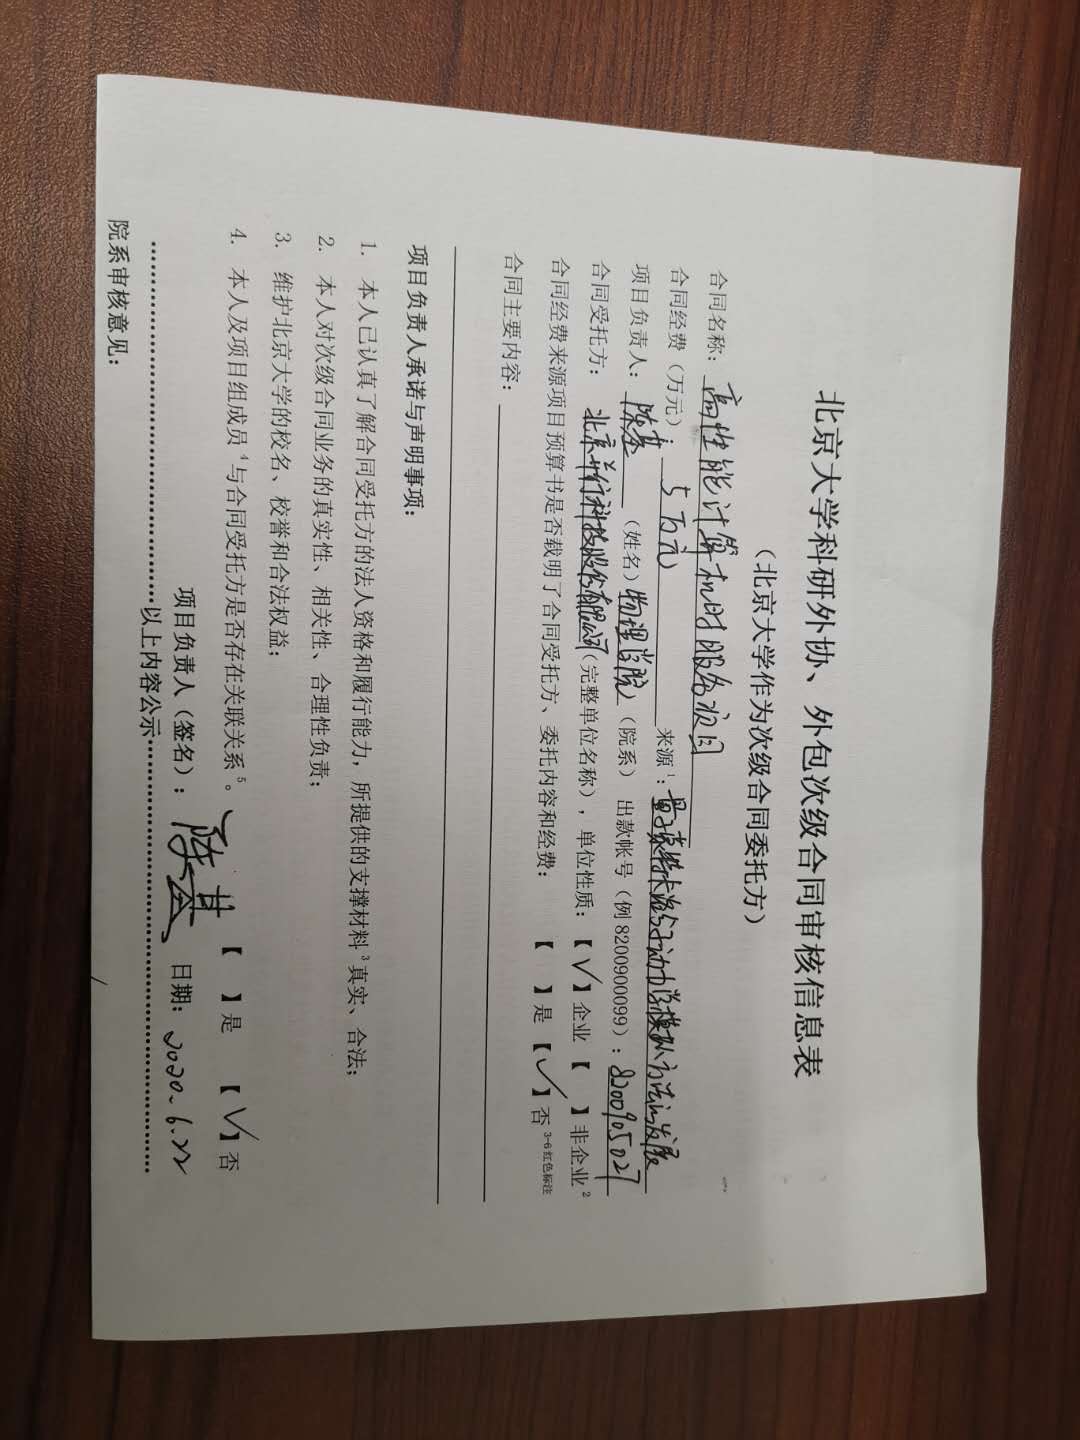 北京大学科研外协、外包次级合同审核信息表
（北京大学作为次级合同委托方）
合同名称：高性能计算机时服务项目
合同经费（万元）：5万元 来源¹：量子蒙特卡洛与动力学模拟方法的发展
项目负责人：陈基（姓名）物理学院（院系） 出款帐号（例8200900099）：8200905027
合同受托方：北京并行科技股份有限公司（完整单位名称），单位性质：【√】企业【 】非企业²
合同经费来源项目预算书是否载明了合同受托方、委托内容和经费：【 】是【√】否 3-6红色标注
合同主要内容：
项目负责人承诺与声明事项：
1. 本人已认真了解合同受托方的法人资格和履行能力，所提供的支撑材料³真实、合法；
2. 本人对次级合同业务的真实性、相关性、合理性负责；
3. 维护北京大学的校名、校誉和合法权益；
4. 本人及项目组成员⁴与合同受托方是否存在关联关系⁵。 【 】是 【√】否
项目负责人（签名）：陈基 日期：2020.6.22
以上内容公示
院系审核意见：